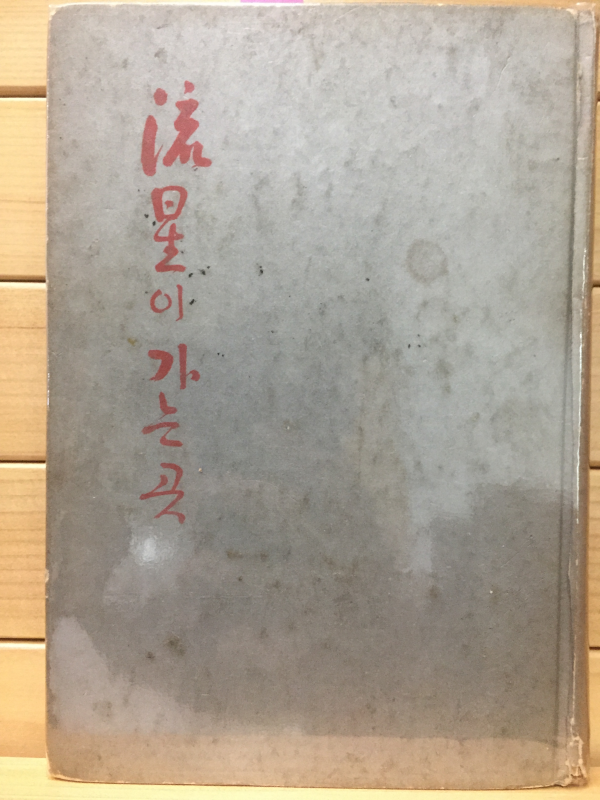 流星이가는곳